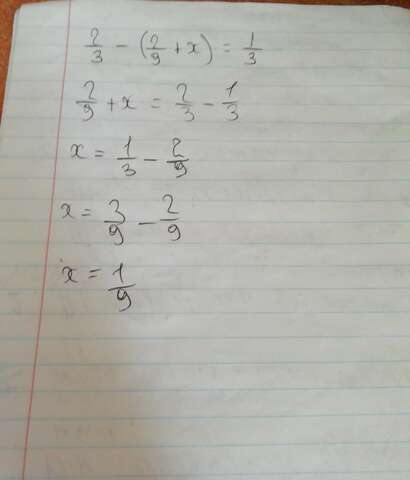 2/3 - (2/9 + x) = 1/3
2/9 + x = 2/3 - 1/3
x = 1/3 - 2/9
x = 3/9 - 2/9
x = 1/9